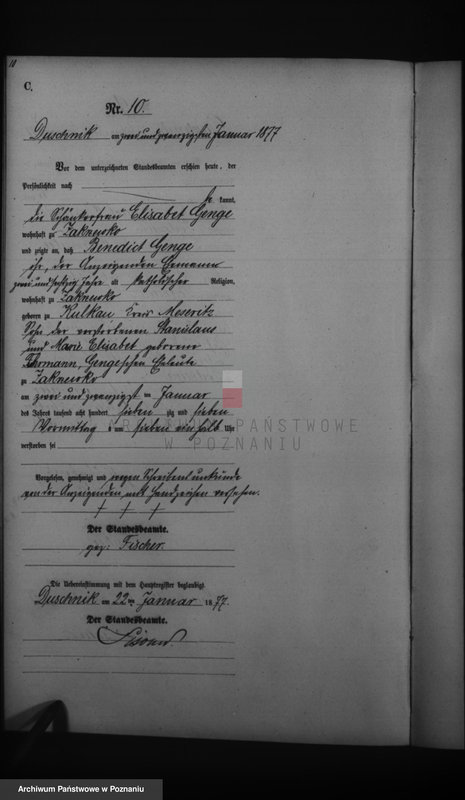 10
C.
Nr. 10.
Duschnik am zwei und zwanzigsten Januar 1877
Vor dem unterzeichneten Standesbeamten erschien heute, der
Persönlichkeit nach
kannt,
die Schänkerfrau Elisabet Genge
wohnhaft zu Zakrewko
und zeigte an, daß Benedict Genge
ihr, der Anzeigenden Ehemann
zwei und sechzig Jahre alt katholischer Religion,
wohnhaft zu Zakrewko
geboren zu Kulkau Kreis Meseritz
Sohn der verstorbenen Stanislaus
und Marie Elisabet geborene
Genge'schen Eheleute
zu Zakrewko
am zwei und zwanzigsten Januar
des Jahres tausend acht hundert sieben zig und sieben
Vormittags um sieben ein halb Uhr
verstorben sei
Vorgelesen, genehmigt und wegen Schreibensunkunde
von der Anzeigenden mit Handzeichen versehen.
† † †
Der Standesbeamte.
gez: Fischer.
Die Uebereinstimmung mit dem Hauptregister beglaubigt.
Duschnik am 22ten Januar 1877.
Der Standesbeamte.
ARCHIWUM PAŃSTWOWE
W POZNANIU
Archiwum Państwowe w Poznaniu